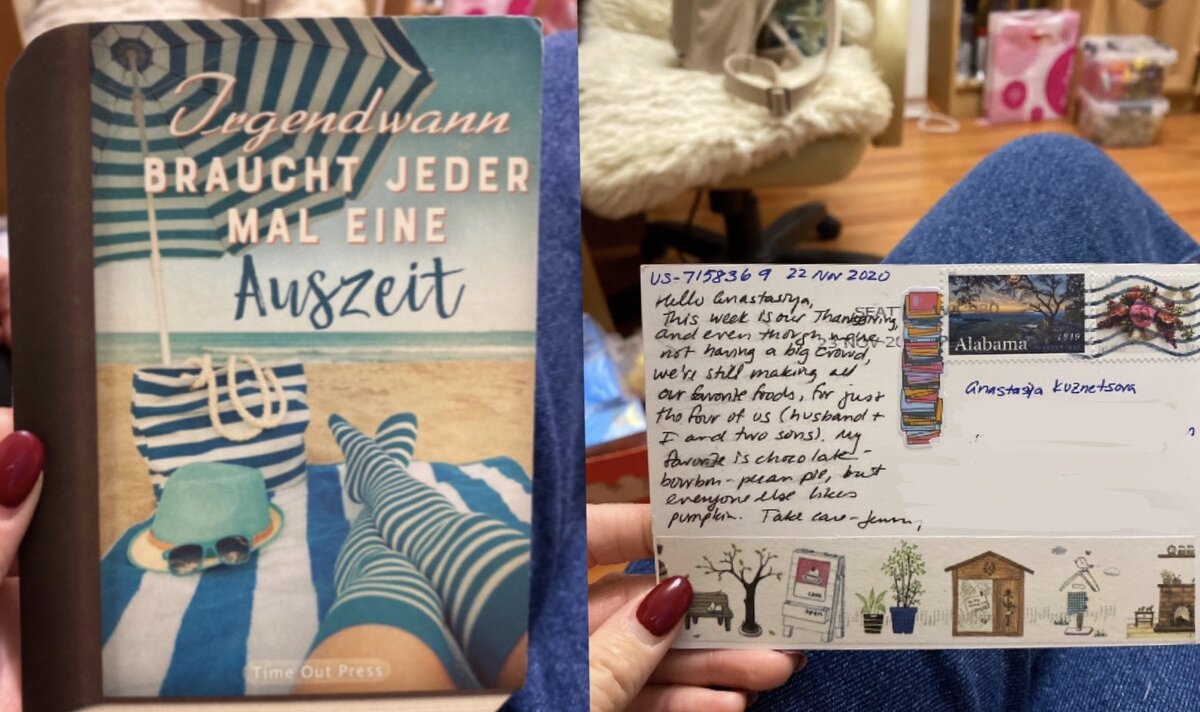 Irgendwann
BRAUCHT JEDER
MAL EINE
Auszeit
Time Out Press
US-7158369 22 Nov 2020
Hello Anastasiya,
This week is our Thanksgiving,
and even though we're
not having a big crowd,
we're still making all
our favorite foods, for just
the four of us (husband +
I and two sons). My
favorite is chocolate-
bourbon-pecan pie, but
everyone else likes
pumpkin. Take care - Jenny
SEAT
23 NOV 20
Alabama 1819
Anastasiya Kuznetsova
CAKE
open